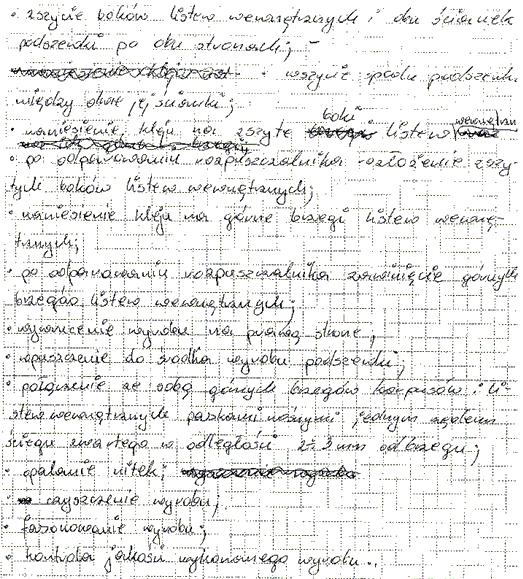 • zszycie boków listew wewnętrznych i obu ścianek
podszewki po obu stronach; –
• wszycie spodu podszewki
między obie jej ścianki;
• naniesienie kleju na zszyte boki listew wewnętrzn
• po odparowaniu rozpuszczalnika – rozłożenie zszy-
tych boków listew wewnętrznych;
• naniesienie kleju na górne brzegi listew wewnę-
trznych;
• po odparowaniu rozpuszczalnika zawinięcie górnych
brzegów listew wewnętrznych;
• wywrócenie wyrobu na prawą stronę;
• wpuszczenie do środka wyrobu podszewki;
• połączenie ze sobą górnych brzegów korpusów i li-
stew wewnętrznych paskami nośnymi jednym rzędem
ściegu zwartego w odległości 2÷3 mm od brzegu;
• opalanie nitek;
• czyszczenie wyrobu;
• fasonowanie wyrobu;
• kontrola jakości wykonanego wyrobu..